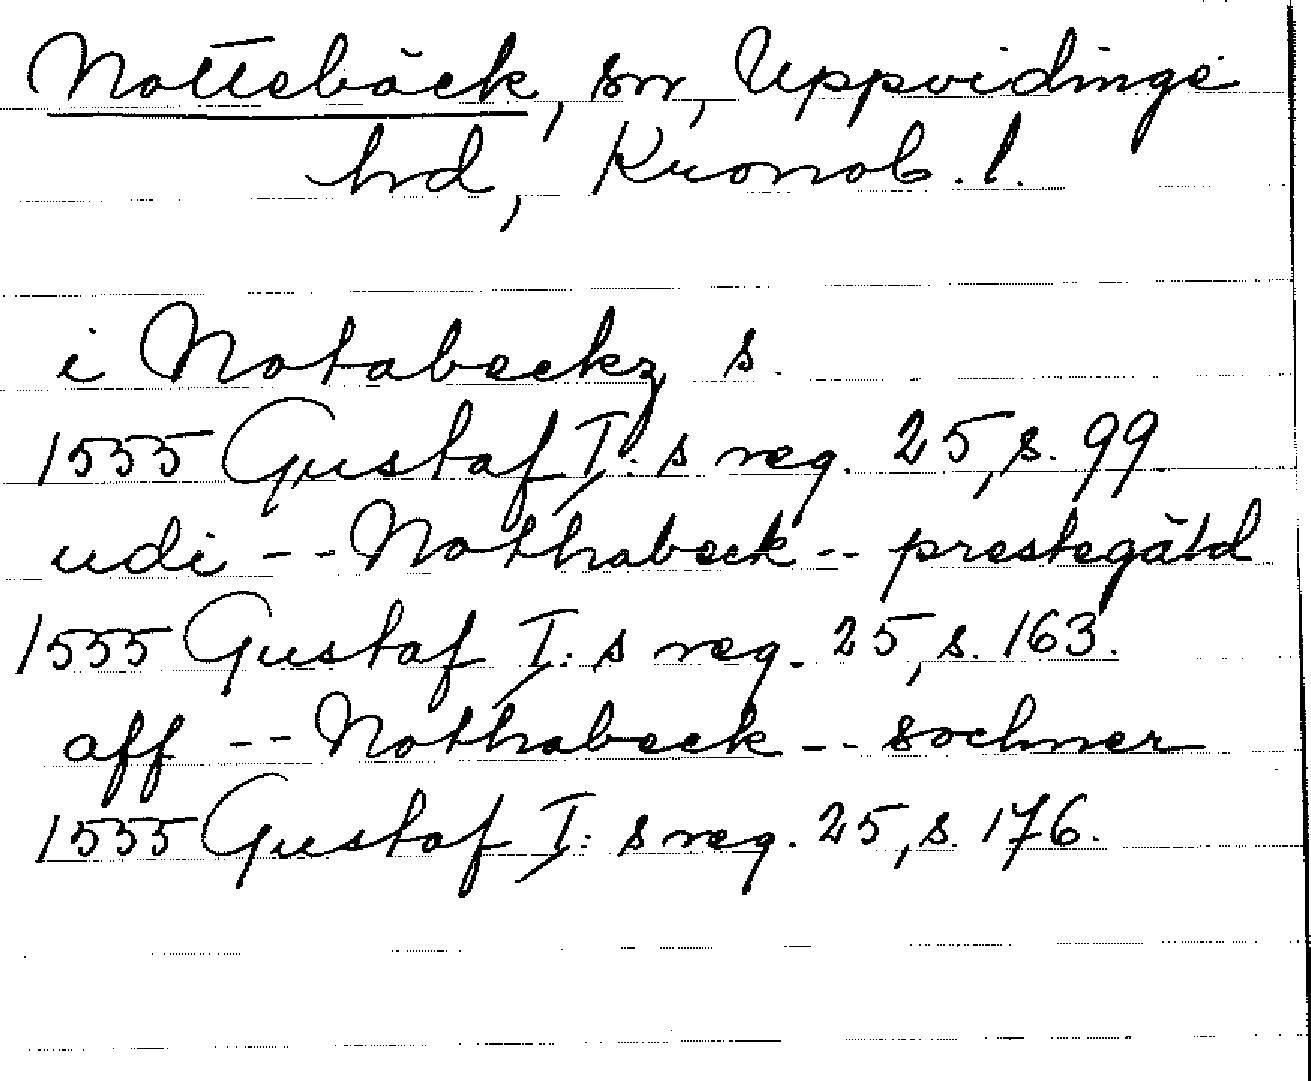 Nottebäck, sn, Uppvidinge
hrd, Kronob. l.
i Notabeckz s.
1555 Gustaf I:s reg. 25, s. 99
udi -- Nothabeck -- prestegäld
1555 Gustaf I:s reg. 25, s. 163.
aff -- Nothabeck -- sochner
1555 Gustaf I:s reg. 25, s. 176.